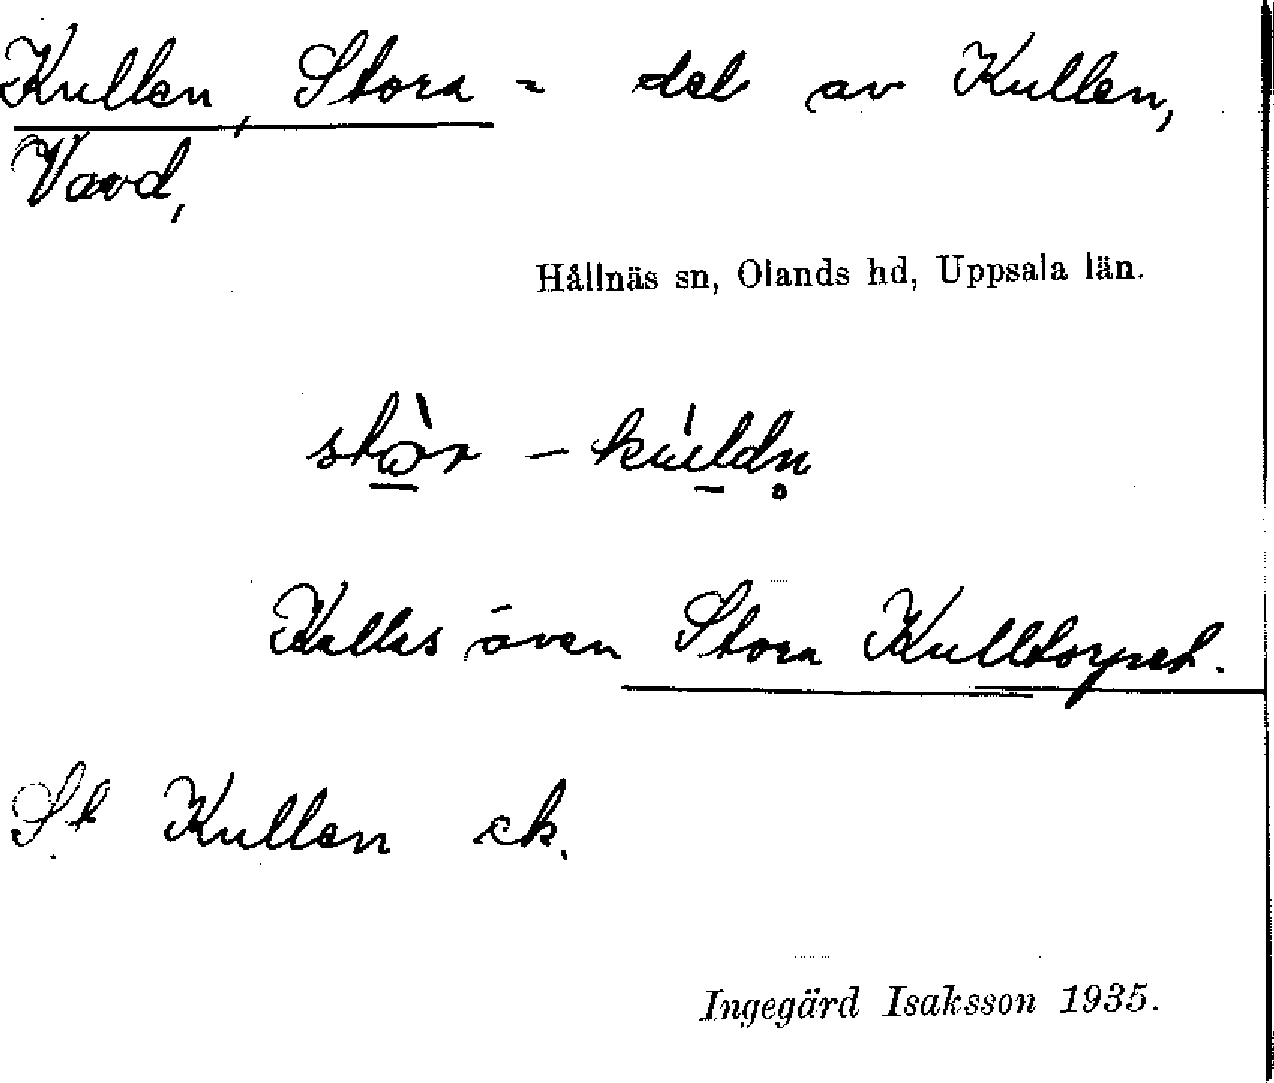 Kullen, Stora = del av Kullen,
Vavd,
Hållnäs sn, Olands hd, Uppsala län.
stòr – kúldn̥
Kallas även Stora Kulltorpet.
St Kullen ek.
Ingegärd Isaksson 1935.